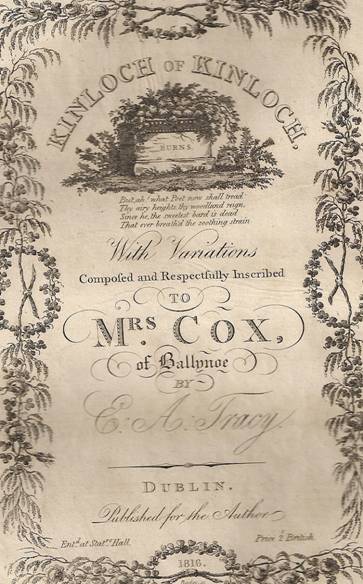 KINLOCH OF KINLOCH,
BURNS.
Poet, ah! what Poet now shall tread
Thy airy heights, thy woodland reign,
Since he, the sweetest bard is dead
That ever breath'd the soothing strain
With Variations
Composed and Respectfully Inscribed
TO
MRS. COX,
of Ballynoe
BY
E. A. Tracy
DUBLIN.
Published for the Author
Entd. at Statrs. Hall.
Price 2 British
1816.